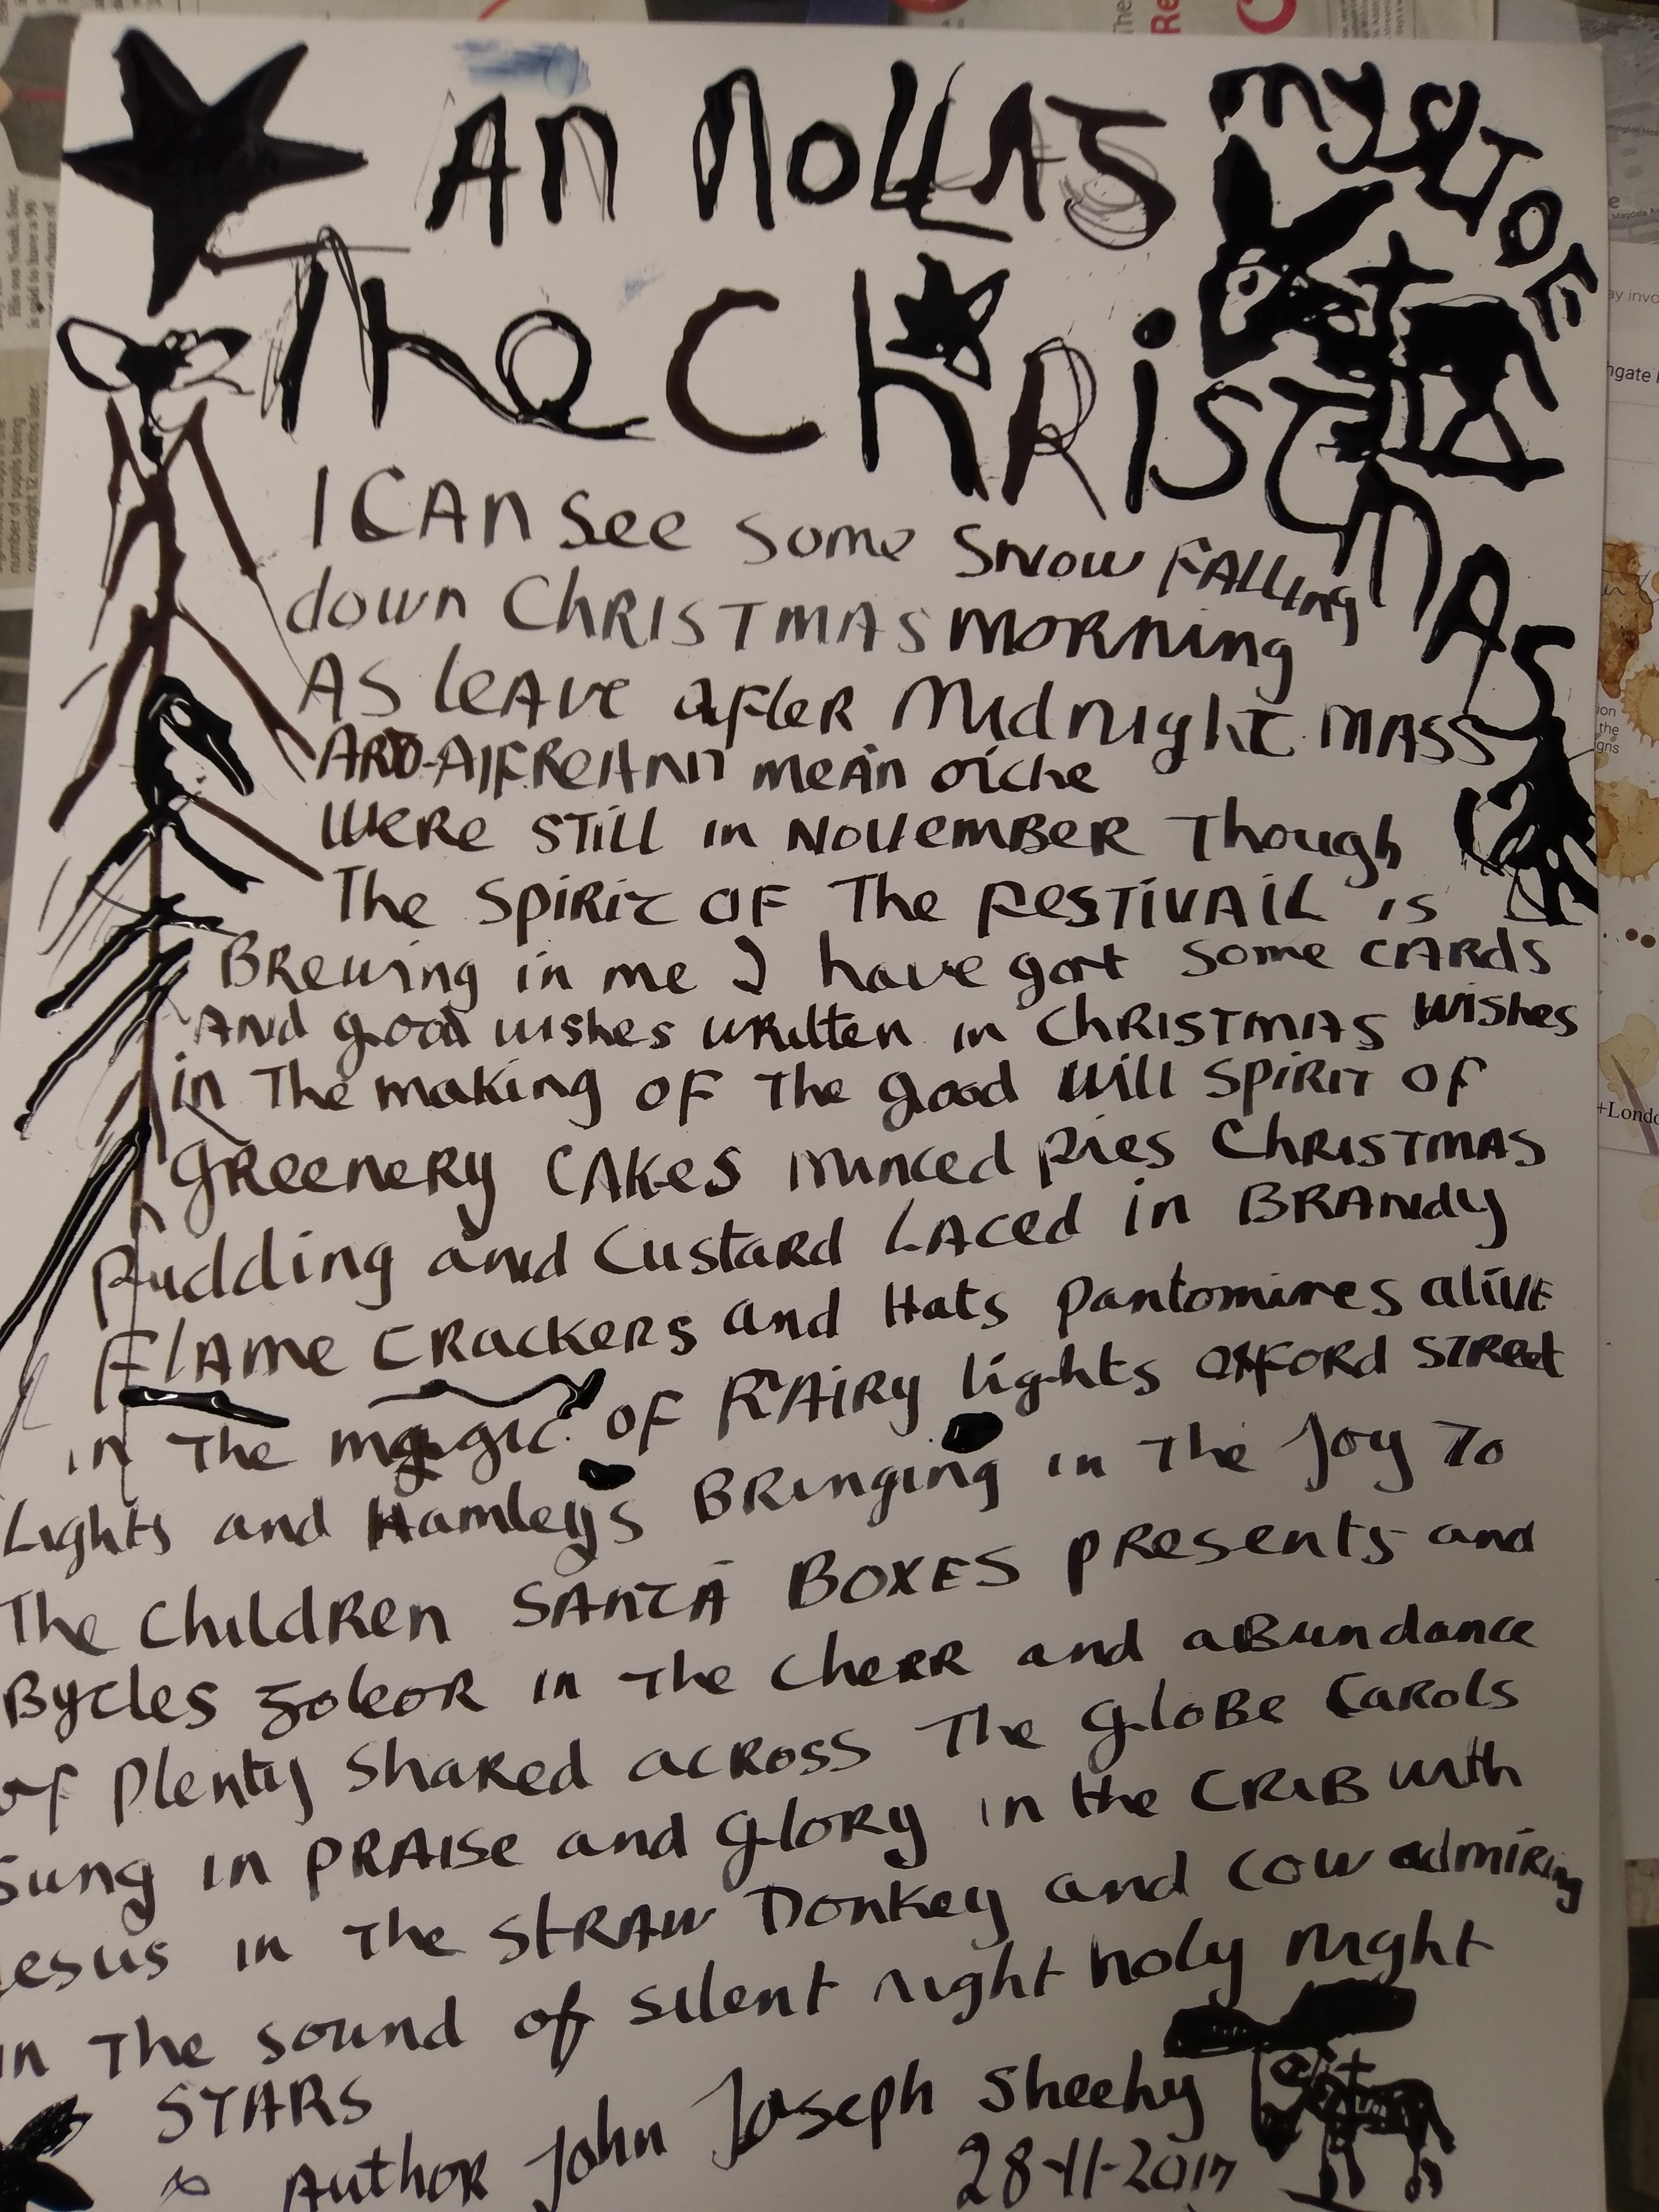 AN NOLLAS
The CHRISTMAS
MYSLTOE
I CAN See some SNOW FALLing
down CHRISTMAS MORNing
AS LEAVE after MidNight MASS
ARD-AIFREANN meán oíche
WERE STill in NOVEMBER Though
The SPIRIT OF The FESTIVAIL is
BRewing in me I have gort some CARDS
And good wishes WRitten in CHRISTMAS Wishes
in The making OF The good Will SPIRIT OF
GREENERY CAKES minced pies CHRISTMAS
Pudding and CustaRd LAced in BRANdy
FLAME CRackeRs and Hats Pantomimes alive
in The magic OF FAIRY lights OXFORD STReet
Lights and Hamleys BRinging in The Joy To
The ChildRen SANTA BOXES PResents and
Bycles goleoR in The CheRR and aBundance
of Plenty ShaRed acROSS The GLOBE CaRols
Sung in PRAISE and GLORY in the CRIB with
Jesus in The STRAW Donkey and Cow admiRing
in The sound of silent night holy Night
STARS
AuthoR John Joseph Sheehy
28-11-2017